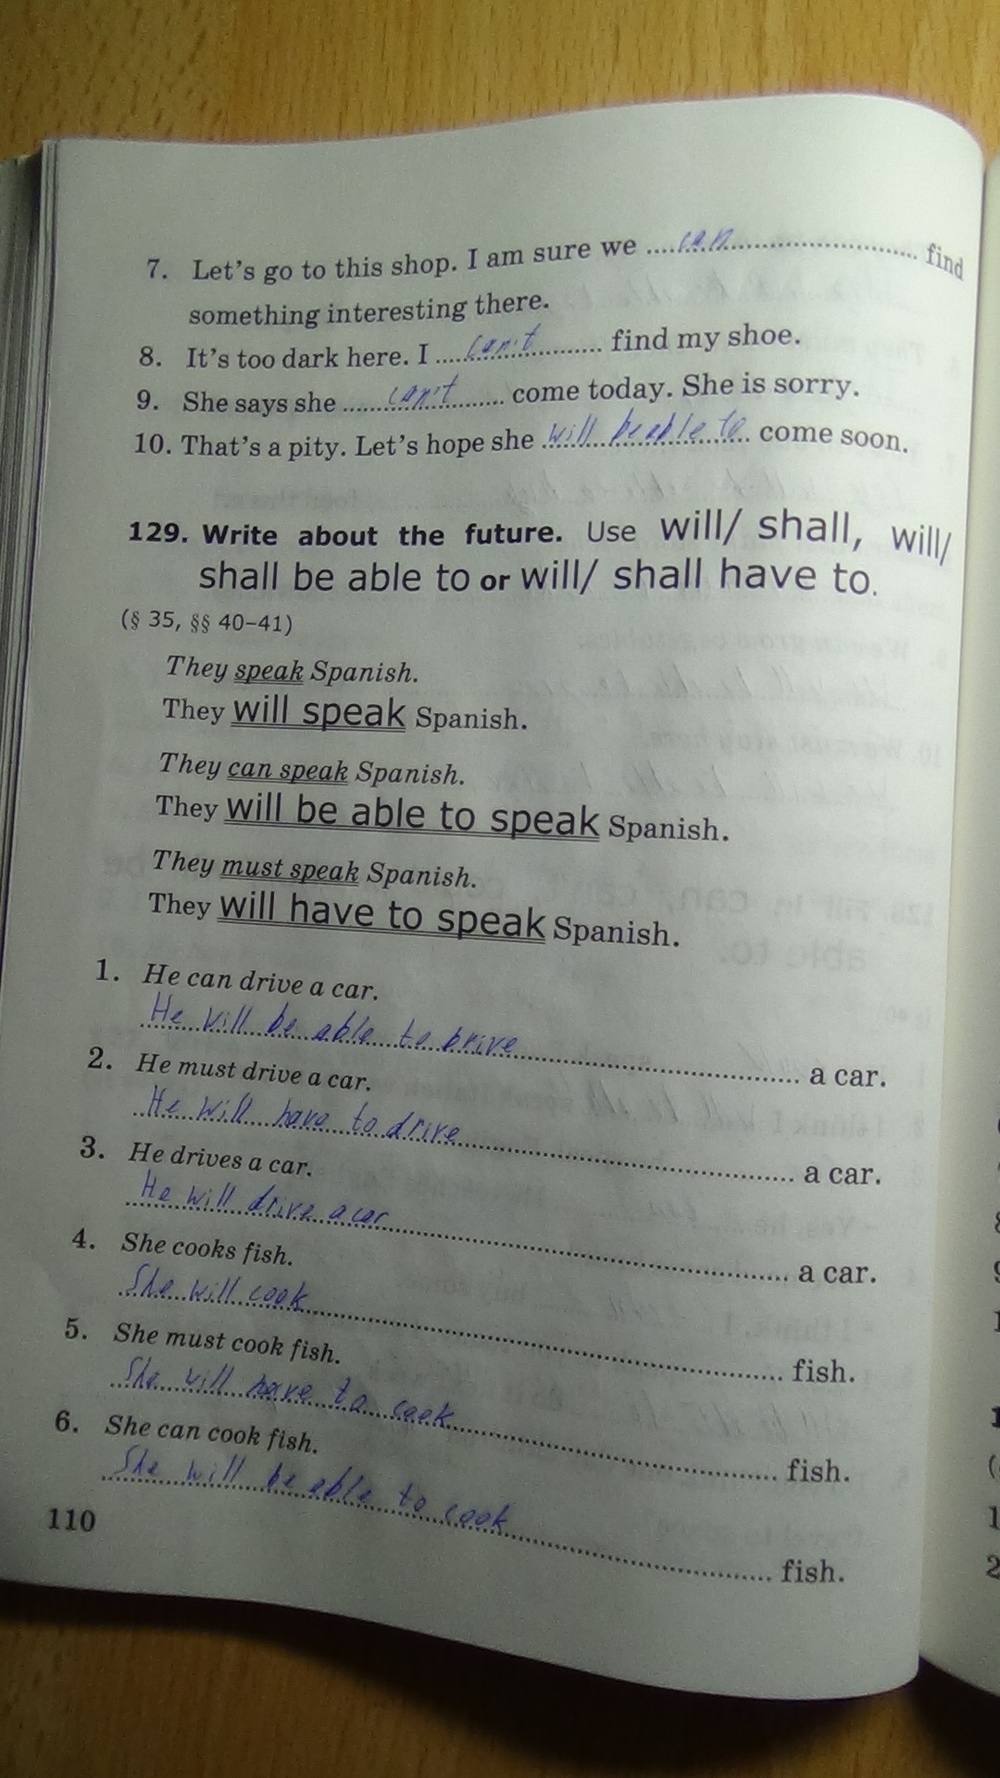 7. Let's go to this shop. I am sure we ....can.... find
something interesting there.
8. It's too dark here. I ....can't.... find my shoe.
9. She says she ....can't.... come today. She is sorry.
10. That's a pity. Let's hope she will be able to come soon.
129. Write about the future. Use will/ shall, will/
shall be able to or will/ shall have to.
(§ 35, §§ 40–41)
They speak Spanish.
They will speak Spanish.
They can speak Spanish.
They will be able to speak Spanish.
They must speak Spanish.
They will have to speak Spanish.
1. He can drive a car.
He will be able to brive .... a car.
2. He must drive a car.
He will have to drive .... a car.
3. He drives a car.
He will drive a car .... a car.
4. She cooks fish.
She will cook .... fish.
5. She must cook fish.
She will have to cook .... fish.
6. She can cook fish.
She will be able to cook .... fish.
110